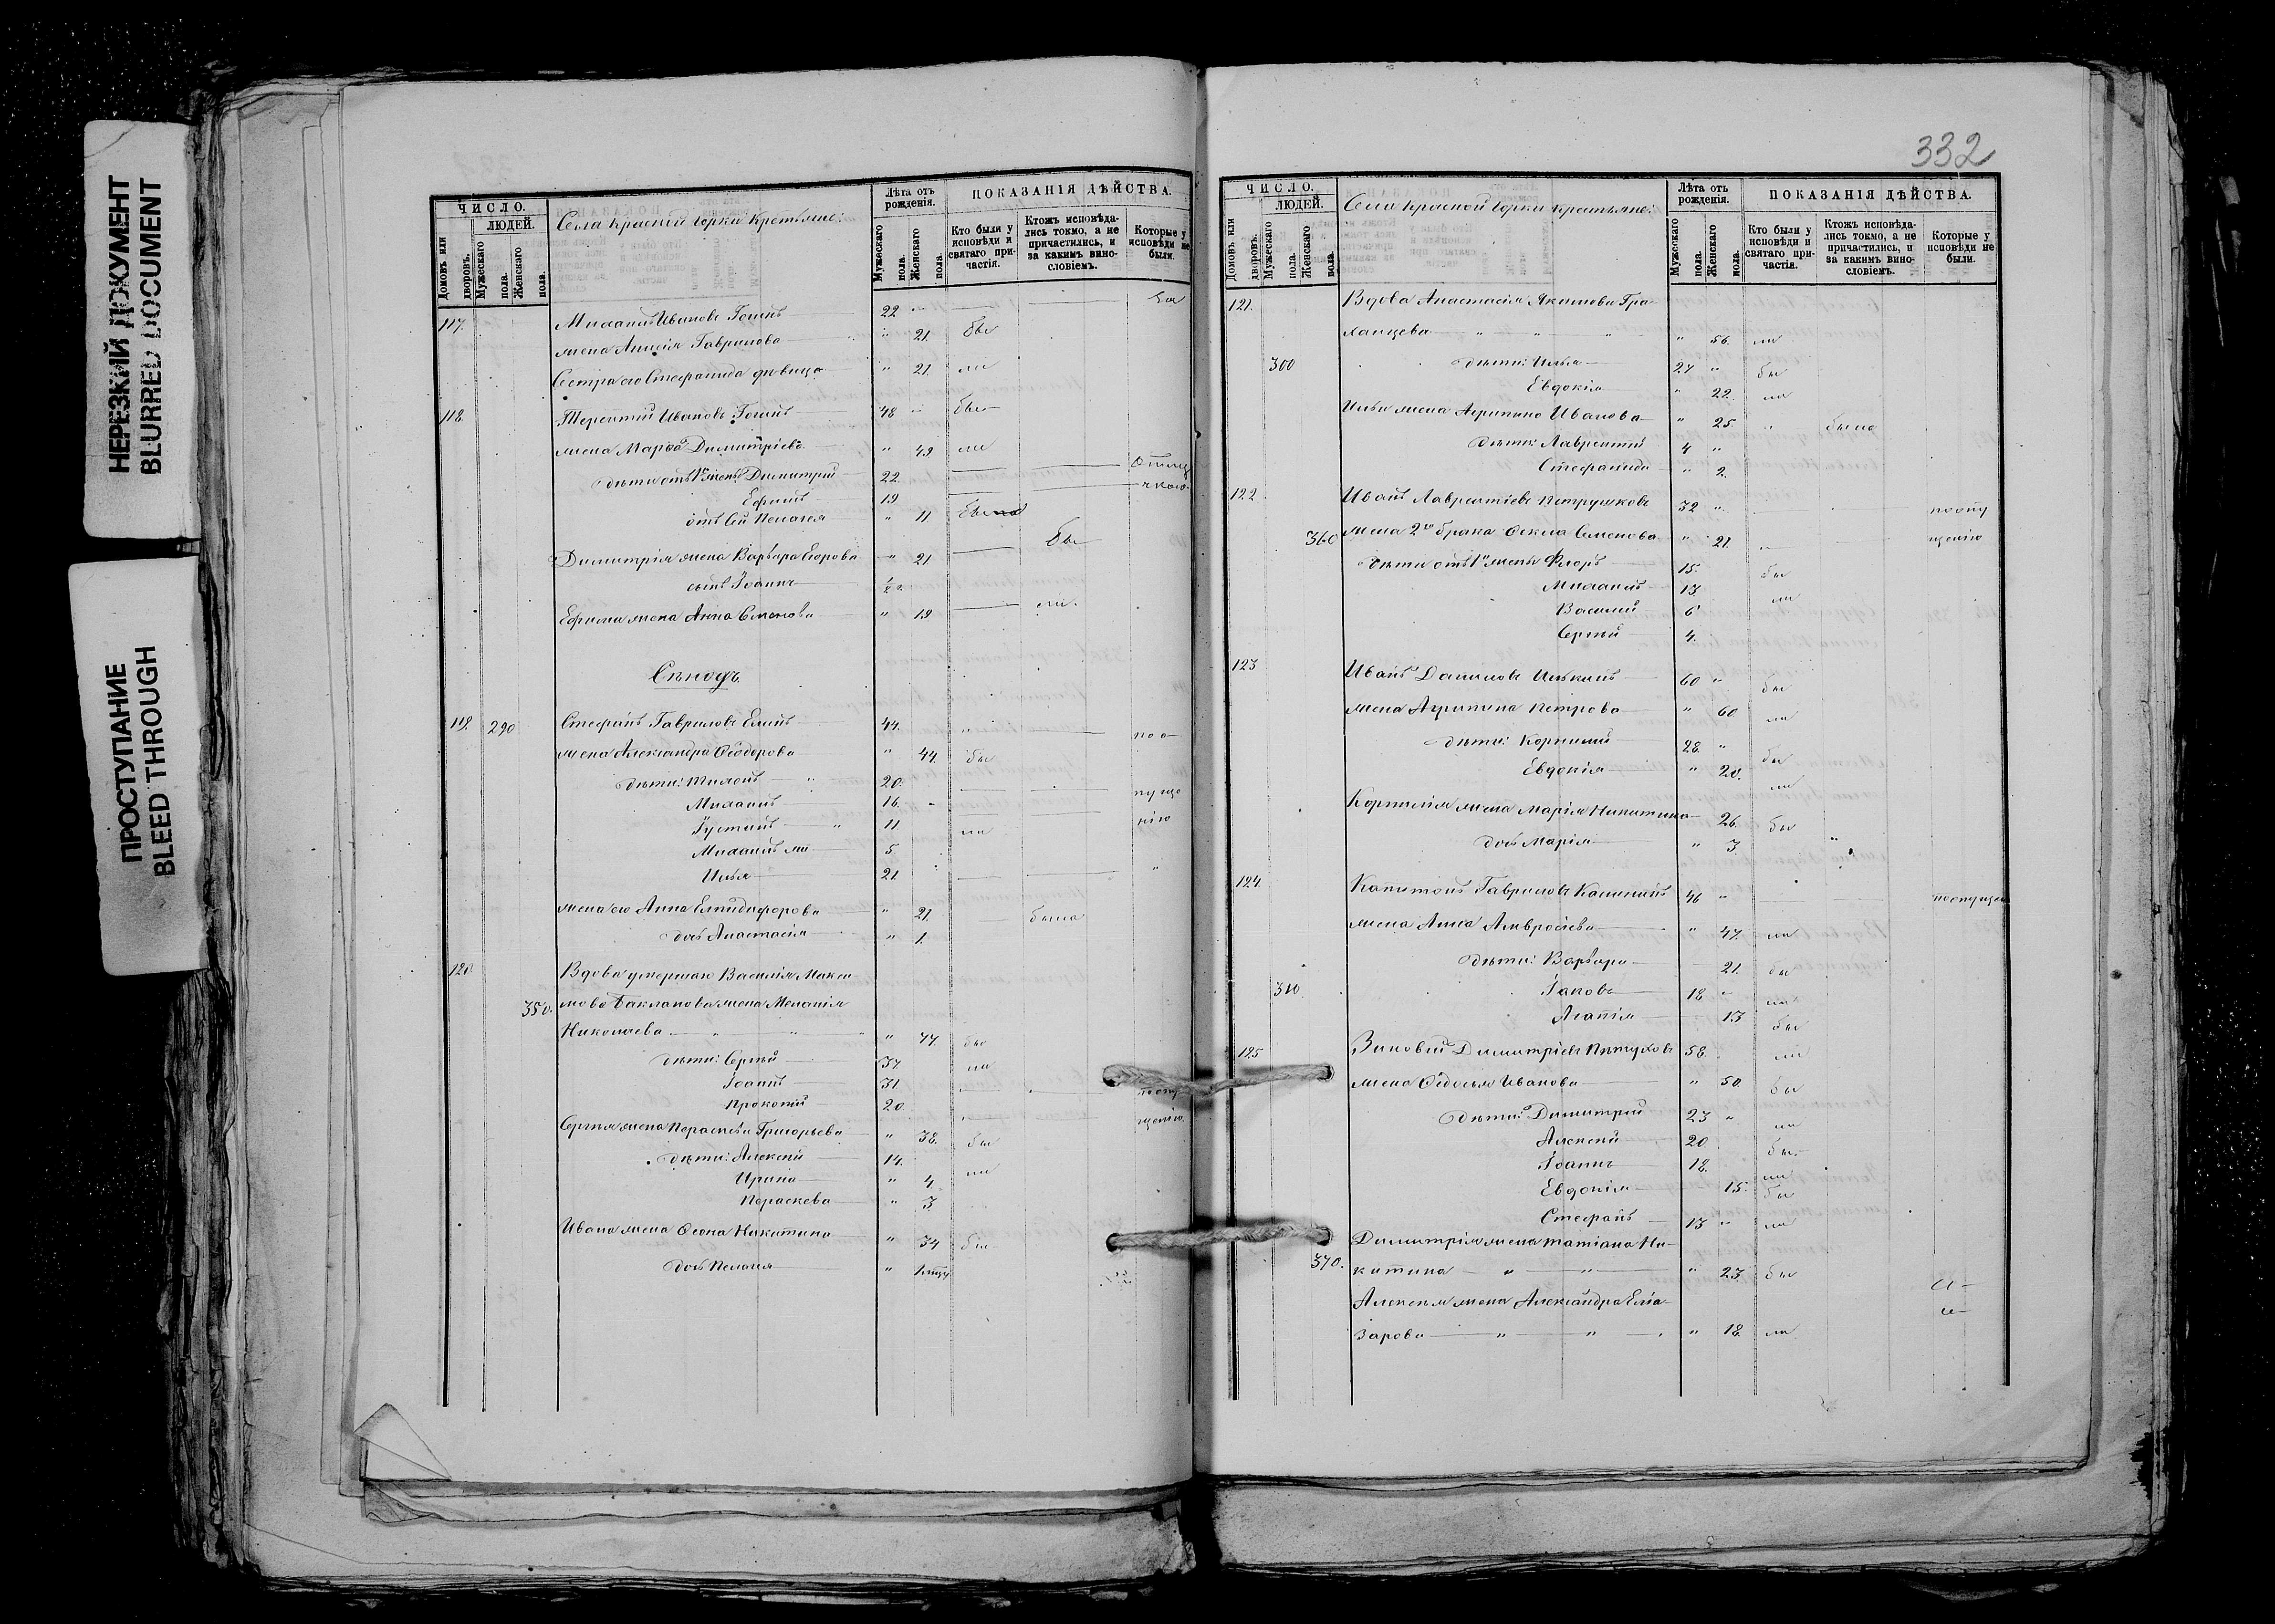 НЕРЕЗКИЙ ДОКУМЕНТ
BLURRED DOCUMENT
ПРОСТУПАНИЕ
BLEED THROUGH
ЧИСЛО.
ЛЮДЕЙ.
Домовъ или дворовъ.
Мужескаго пола.
Женскаго пола.
Села Красной Горки Крестьяне:
Лѣта отъ рожденія.
Мужескаго пола.
Женскаго пола.
ПОКАЗАНІЯ ДѢЙСТВА.
Кто были у исповѣди и святаго причастія.
Ктожъ исповѣдались токмо, а не причастились, и за какимъ винословіемъ.
Которые у исповѣди не были.
117. Михаилъ Ивановъ 22
жена Анисія Гаврилова " 21. бы
Сестра его Стефанида дѣвица " 21. ли
118. Терентій Ивановъ 48 " бы
жена Марѳа Димитріева " 49 ли
дѣти отъ 1й жены Димитрій 22
Ефимъ 19
отъ сей Пелагея " 11
Димитрія жена Варвара Егорова " 21 бы
сынъ Іоаннъ
Ефима жена Анна Семенова " 19 ли.
119. 290 Стефанъ Гавриловъ 44. поо
жена Александра Ѳеодорова " 44. бы
дѣти: 20. пуще
Михаилъ 16. нію
Іустинъ 11. ли
Михаилъ 5
Илья 21
жена его Анна Елпидифорова " 21. была
дочь Анастасія " 1.
120. Вдова умершаго Василія Макси
350. мова Бакланова жена Меланія
Николаева " 77. бы
дѣти: Сергѣй 37. ли
Іоаннъ 31. поопу
Прокопій 20. щенію
Сергѣя жена Параскева Григорьева " 38. бы
дѣти: Алексѣй 14. ли
Ирина " 4.
Параскева " 3
Ивана жена Ѳеона Никитина " 34 бы
дочь Пелагея "
332
ЧИСЛО.
ЛЮДЕЙ.
Домовъ или дворовъ.
Мужескаго пола.
Женскаго пола.
Села Красной Горки Крестьяне:
Лѣта отъ рожденія.
Мужескаго пола.
Женскаго пола.
ПОКАЗАНІЯ ДѢЙСТВА.
Кто были у исповѣди и святаго причастія.
Ктожъ исповѣдались токмо, а не причастились, и за какимъ винословіемъ.
Которые у исповѣди не были.
121. Вдова Анастасія Якимова
" 56. ли
300 дѣти: Илья 27 " бы
Евдокія " 22. ли
Ильи жена Агрипина Иванова " 25 " была
дѣти: Лаврентій 4 "
Стефанида " 2.
122 Иванъ Лаврентіевъ Петрушковъ 32 " поопу
360 жена 2го брака Ѳекла Семенова " 21. щенію
дѣти отъ 1й жены Флоръ 15. бы
Михаилъ 13 ли
Василій 6
Сергѣй 4.
123 Иванъ Даниловъ 60 " бы
жена Агрипина Петрова " 60 ли
дѣти: Корнилій 28. " бы
Евдокія " 20. ли
Корнилія жена Марія Никитина 26. бы
дочь Марія " 3
124. Капитонъ Гавриловъ 46 " поопущен
жена Анна Амвросіева " 47. ли
дѣти: Варвара 21. бы
310 Іаковъ 18 " ли
Агапія 13 бы
125 Зиновій Димитріевъ Пѣтуховъ 58. ли
жена Ѳедосья Иванова " 50 бы
дѣти: Димитрій 23 " ли
Алексѣй 20. бы
Іоаннъ 18. ли
Евдокія 15. бы
Стефанъ 13 " ли
Димитрія жена Татіана Ни-
370. китина " " " 23. бы
Алексѣя жена Александра Елеа-
зарова " " " 18. ли